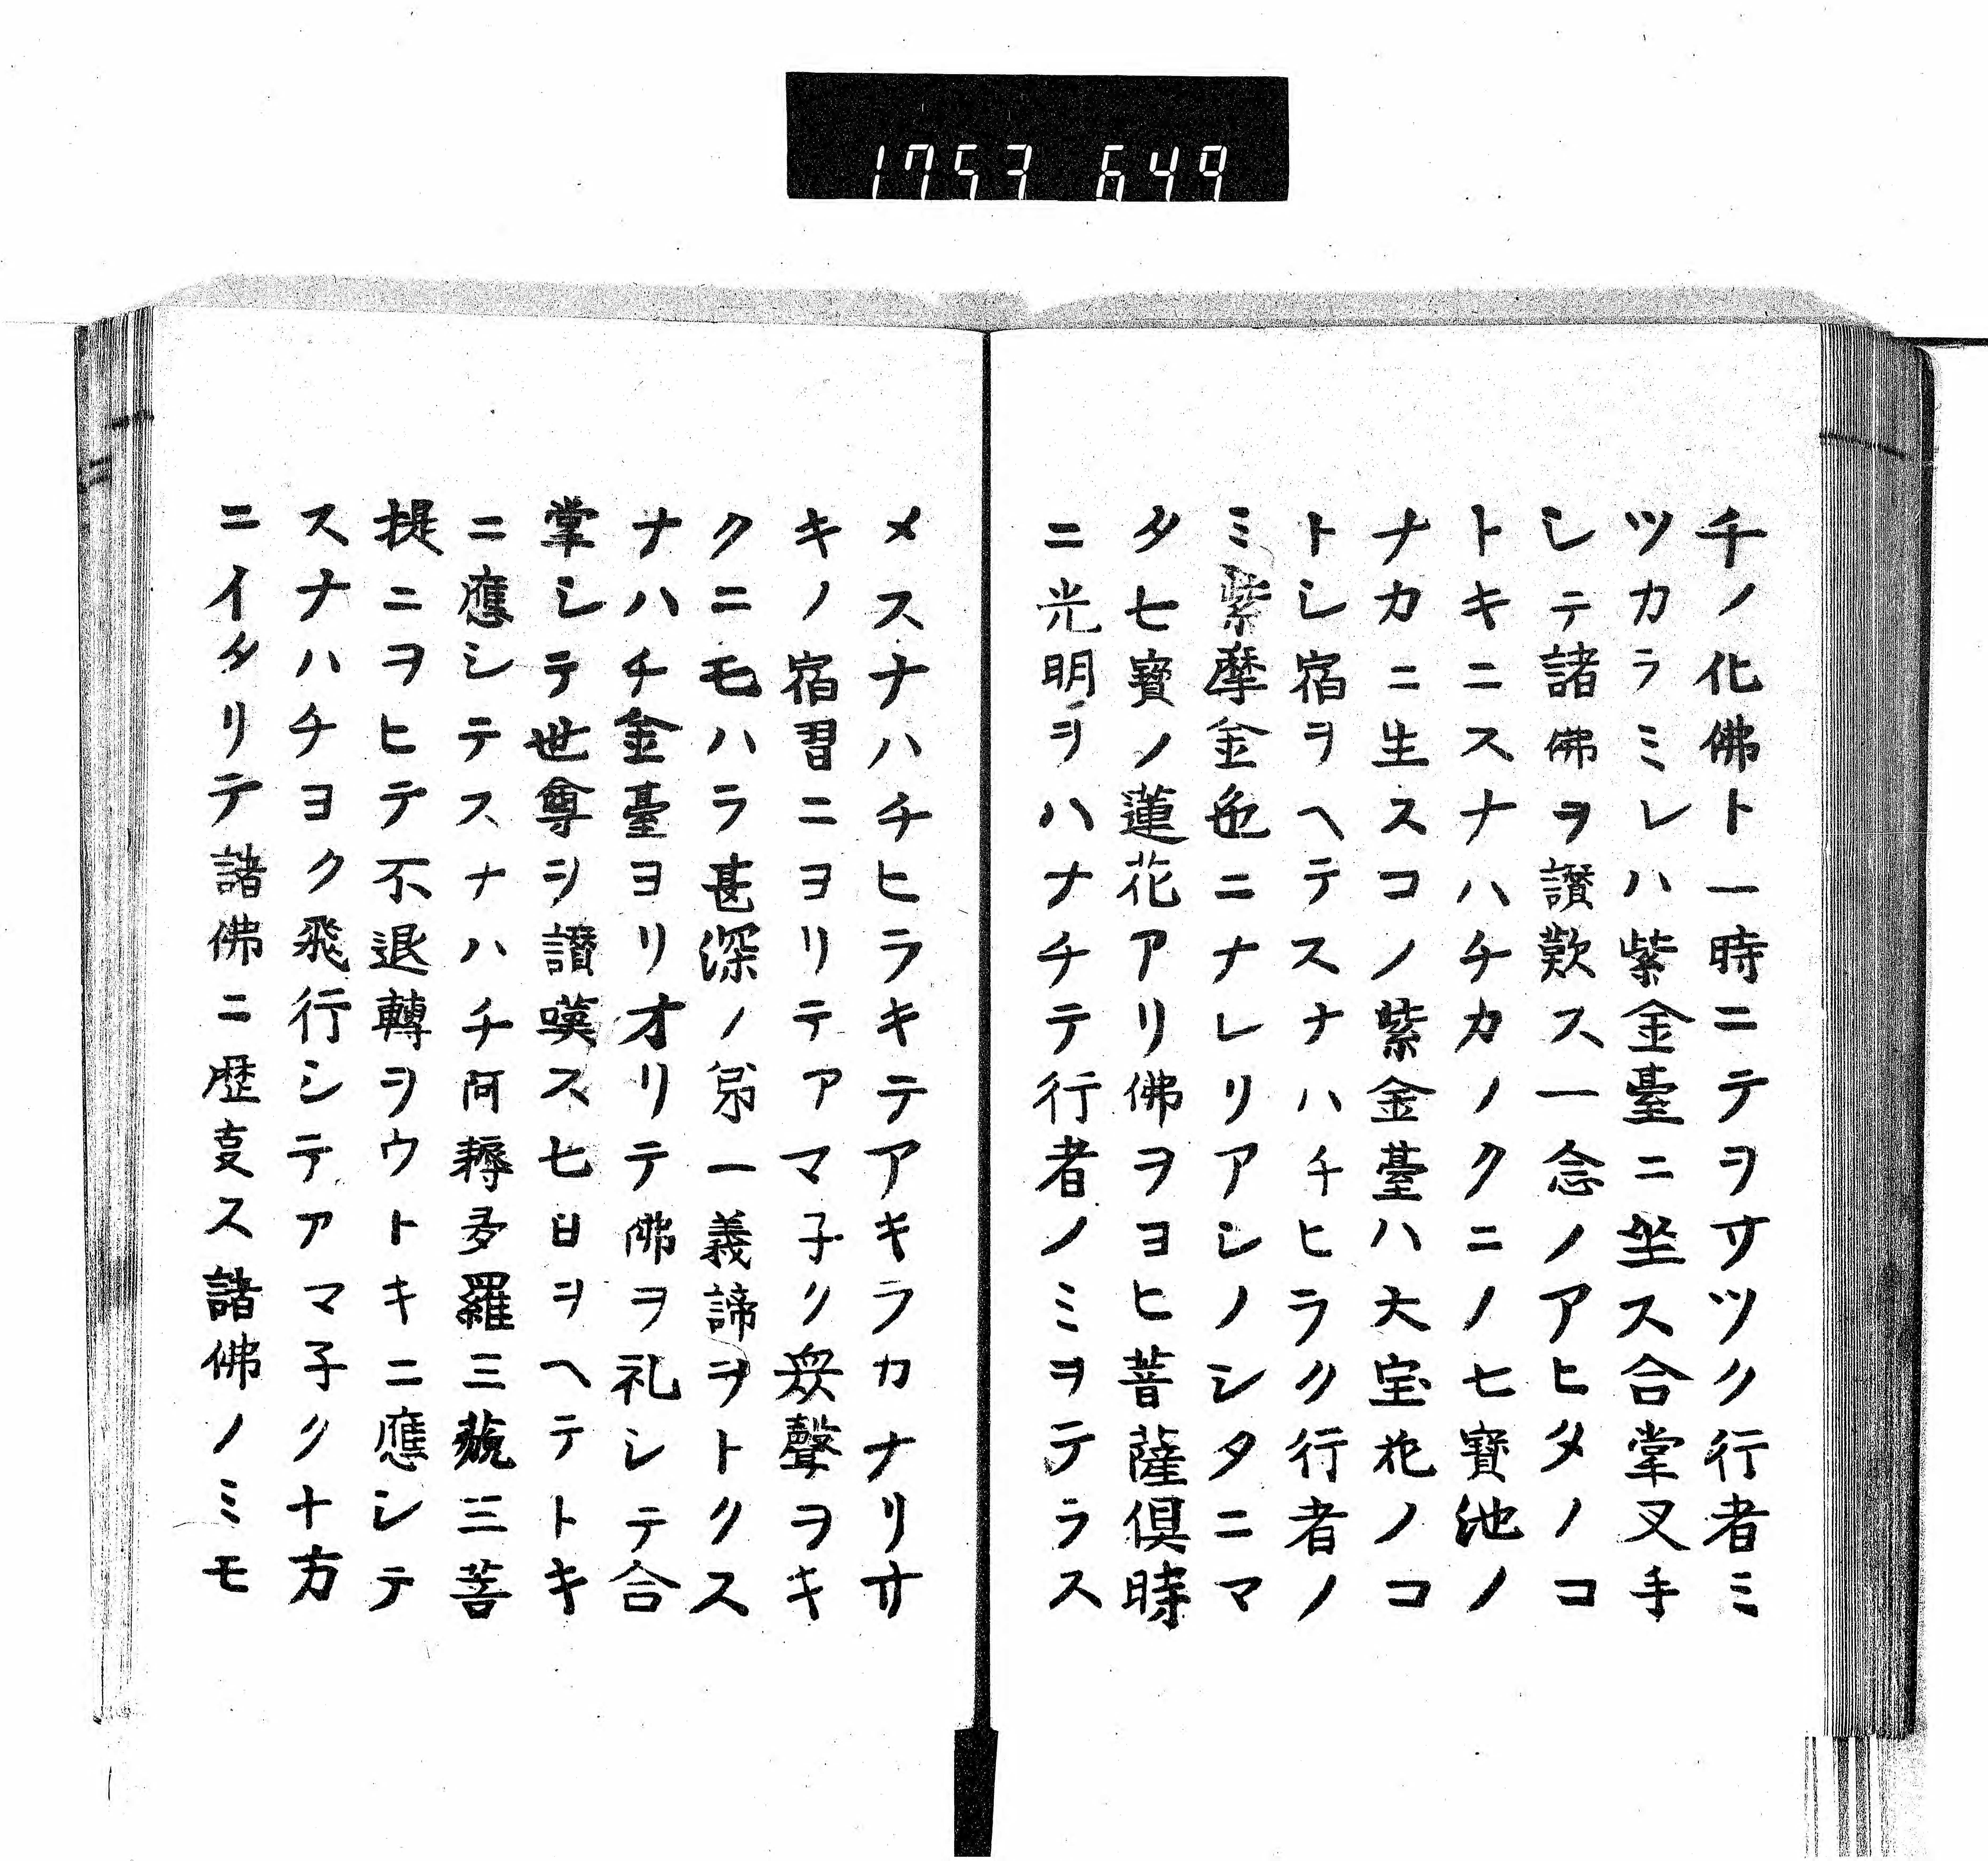 1753 649
千ノ化佛ト一時ニテヲサツク行者ミ
ツカラミレハ紫金臺ニ坐ス合掌叉手
シテ諸佛ヲ讃歎ス一念ノアヒタノコ
トキニスナハチカノクニノ七寳池ノ
ナカニ生スコノ紫金臺ハ大宝花ノコ
トシ宿ヲヘテスナハチヒラク行者ノ
ミ紫摩金色ニナレリアシノシタニマ
タ七寳ノ蓮花アリ佛ヲヨヒ菩薩倶時
ニ光明ヲハナチテ行者ノミヲテラス
メスナハチヒラキテアキラカナリサ
キノ宿習ニヨリテアマ子ク衆聲ヲキ
クニモハラ甚深ノ第一義諦ヲトクス
ナハチ金臺ヨリオリテ佛ヲ礼シテ合
掌シテ世尊ヲ讃嘆ス七日ヲヘテトキ
ニ應シテスナハチ阿耨多羅三藐三菩
提ニヲヒテ不退轉ヲウトキニ應シテ
スナハチヨク飛行シテアマ子ク十方
ニイタリテ諸佛ニ歴事ス諸佛ノミモ